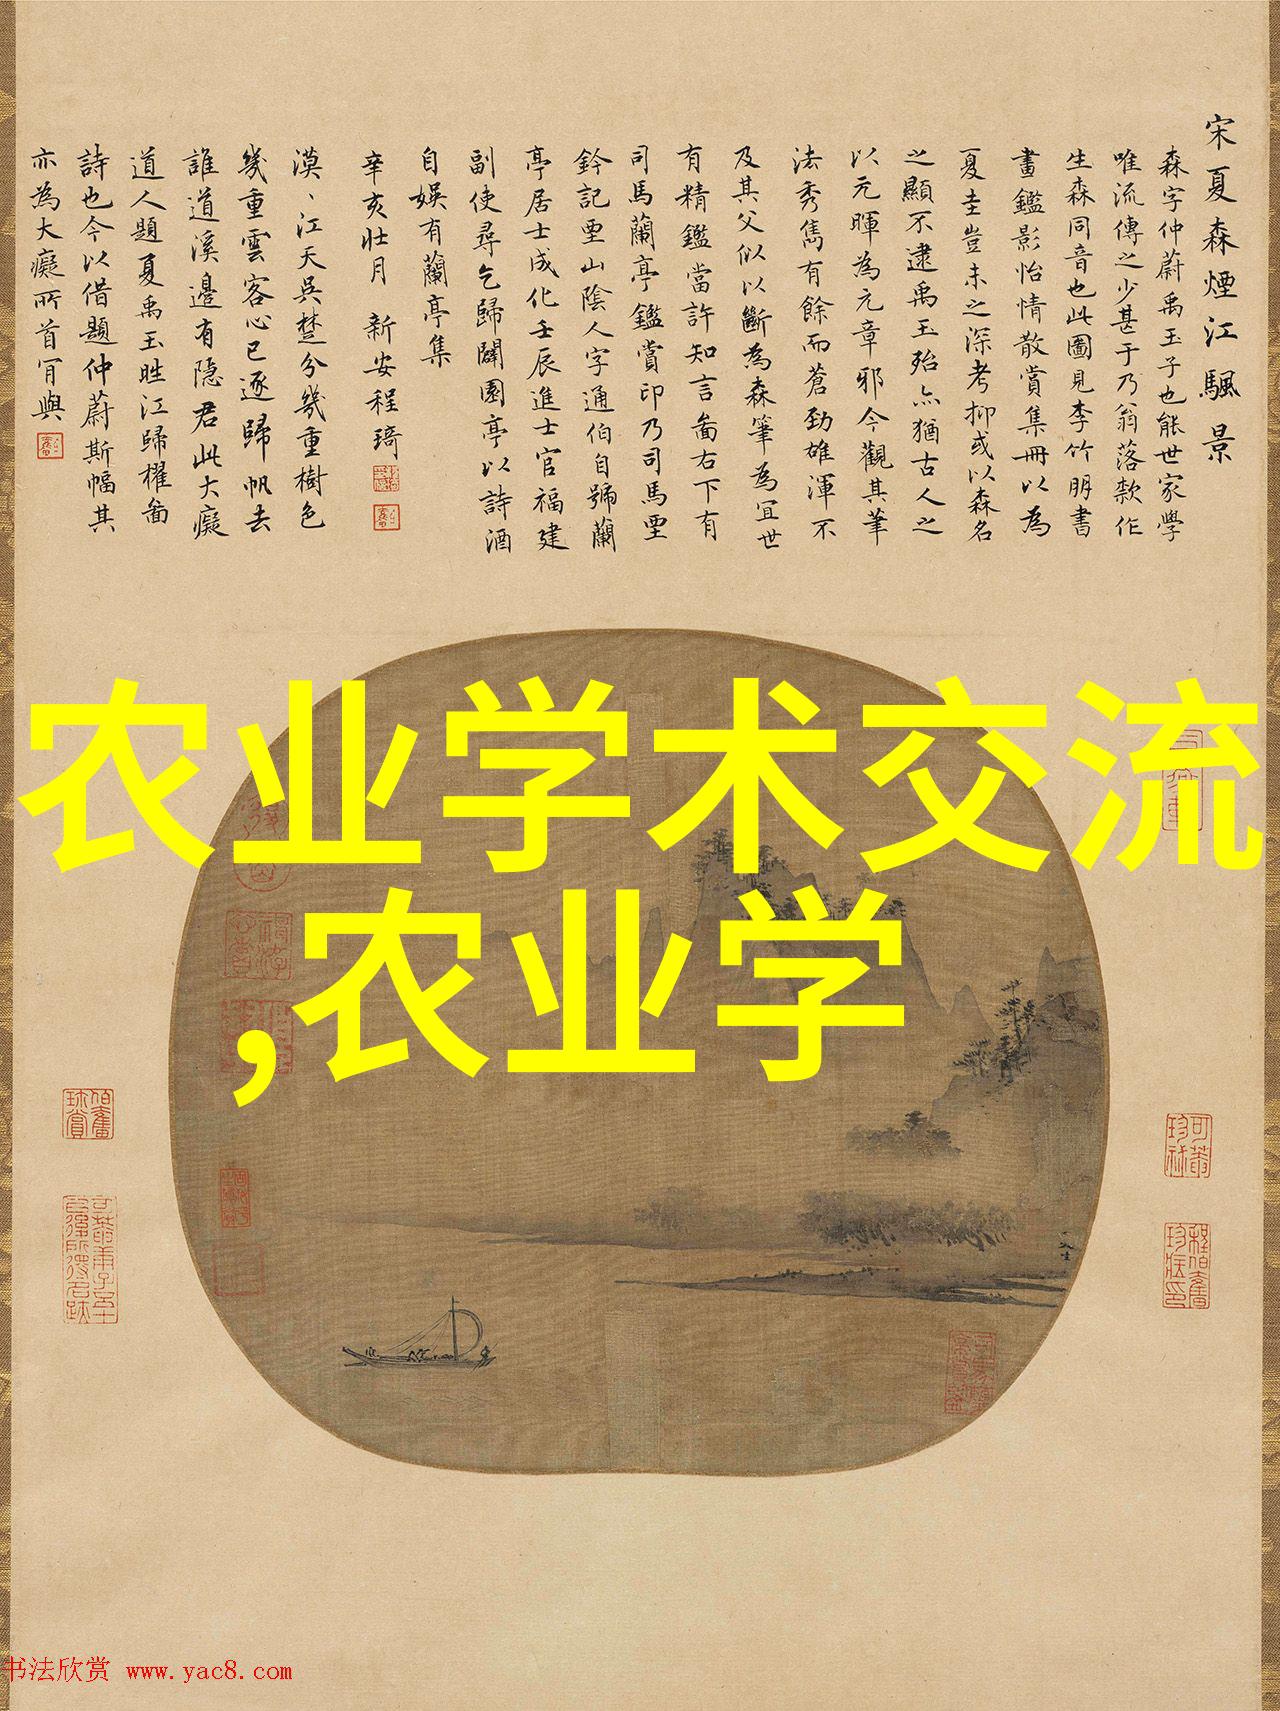 宋夏森煙江驅景
森字仲蔚禹玉子也能世家學
唯流傳之少甚于乃翁落款作
生森同音也此圖見李竹朋書
畫鑑影怡情散賞集冊以為
夏圭豈未之深考抑或以森名
之顯不逮禹玉殆亦猶古人之
以元暉為元章邪今觀其筆
法秀雋有餘而蒼勁雄渾不
及其父似以斷為森筆為宜世
有精鑑當許知言畣右下有
司馬蘭亭鑑賞印乃司馬垔
鈐記垔山陰人字通伯自號蘭
亭居士成化壬辰進士官福建
副使尋乞歸闢園亭以詩酒
自娛有蘭亭集
辛亥壯月 新安程琦
漠、江天吳楚分幾重樹色
幾重雲客心已逐歸帆去
誰道溪邊有隱君此大癡
道人題夏禹玉晴江歸櫂啚
詩也今以借題仲蔚斯幅其
亦為大癡所首肎與
农业学术交流
,农业学
书法欣赏 www.yac8.com